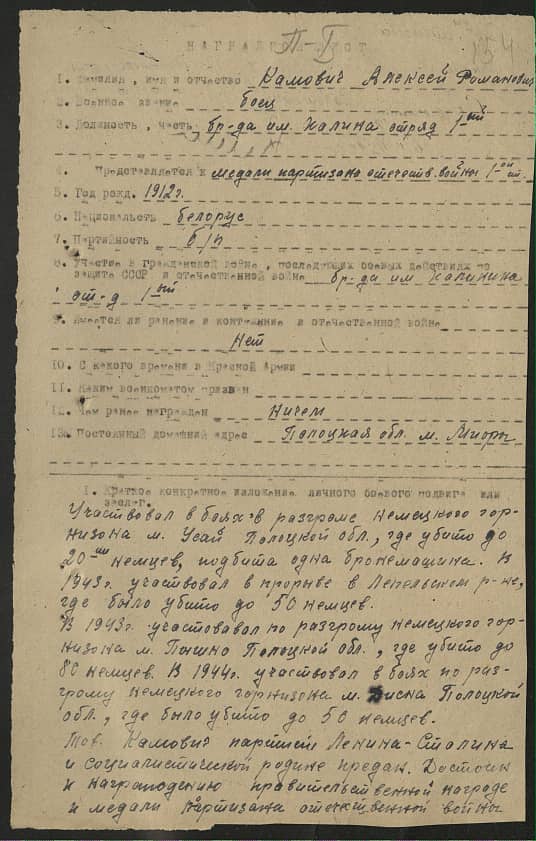 НАГРАДНОЙ ЛИСТ
1. Фамилия, имя и отчество Камович Алексей Романович
2. Военное звание боец
3. Должность, часть бр-да им. Калина отряд 1ый
4. Представляется к медали партизана отечеств. войны 1-ой ст.
5. Год рожд. 1912г.
6. Национальсть белорус
7. Партийность б/п
8. Участие в гражданской войне, последующих боевых действиях по
защите СССР и отечественной войне бр-да им. Калинина
от-д 1ый
9. Имеется ли ранение и контузение в отечественной войне
Нет
10. С какого времени в Красной Армии
11. Каким военкоматом призван
12. Чем ранее награжден Ничем
13. Постоянный домашний адрес Полоцкая обл. м. Миоры
1. Краткое конкретное изложение личного боевого подвига или
заслуг.
Участвовал в боях в разгроме немецкого гор-
низона м. Усай Полоцкой обл., где убито до
20-ти немцев, подбита одна бронемашина. В
1943г. участвовал в прорыве в Лепельском р-не,
где было убито до 50 немцев.
В 1943г. участвовал по разгрому немецкого гор-
низона м. Пышно Полоцкой обл., где убито до
80 немцев. В 1944г. участвовал в боях по раз-
грому немецкого горнизона м. Дисна Полоцкой
обл., где было убито до 50 немцев.
Тов. Камович партией Ленина-Сталина
и социалистической родине предан. Достоин
к награждению правительственной награде
и медали партизана отечественной войны